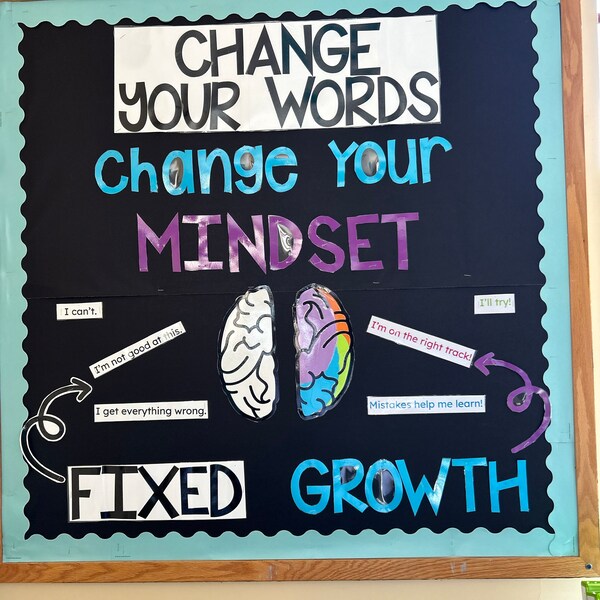 CHANGE
YOUR WORDS
Change Your
MINDSET
I can't.
I'm not good at this.
I get everything wrong.
FIXED
I'll try!
I'm on the right track!
Mistakes help me learn!
GROWTH